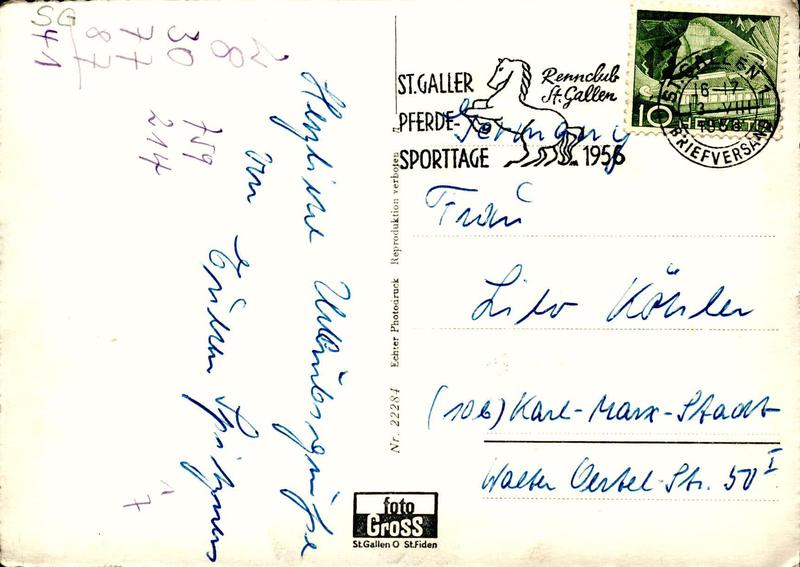 SG
41
87
77
30
28
759
214
17
Herzliche Urlaubsgrüße
von
ST. GALLER
PFERDE-
SPORTTAGE
Rennclub
St. Gallen
1956
10
HELVETIA
ST. GALLEN 1
BRIEFVERSAND
Germany
Frau
Köhler
(10b) Karl-Marx-Stadt
Walter Oertel-Str. 50 I
Nr. 22284 Echter Photodruck Reproduktion verboten
foto
Gross
St. Gallen O St. Fiden